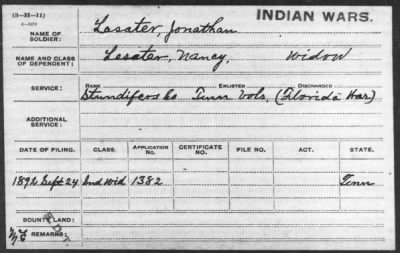 (3-III-11)
INDIAN WARS.
NAME OF SOLDIER: Lasater, Jonathan
NAME AND CLASS OF DEPENDENT: Lasater, Nancy, Widow
SERVICE: RANK ENLISTED DISCHARGED
Standifers Co Tenn Vols, (Florida War)
ADDITIONAL SERVICE:
DATE OF FILING. CLASS. APPLICATION NO. CERTIFICATE NO. FILE NO. ACT. STATE.
1892 Sept 24 Ind Wid 1382 Tenn
BOUNTY LAND:
REMARKS: